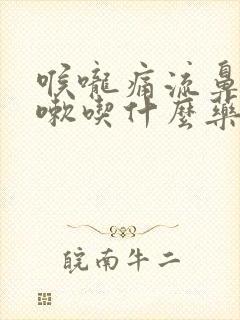 喉嚨痛流鼻
嗽喫什麼藥
皖南牛二